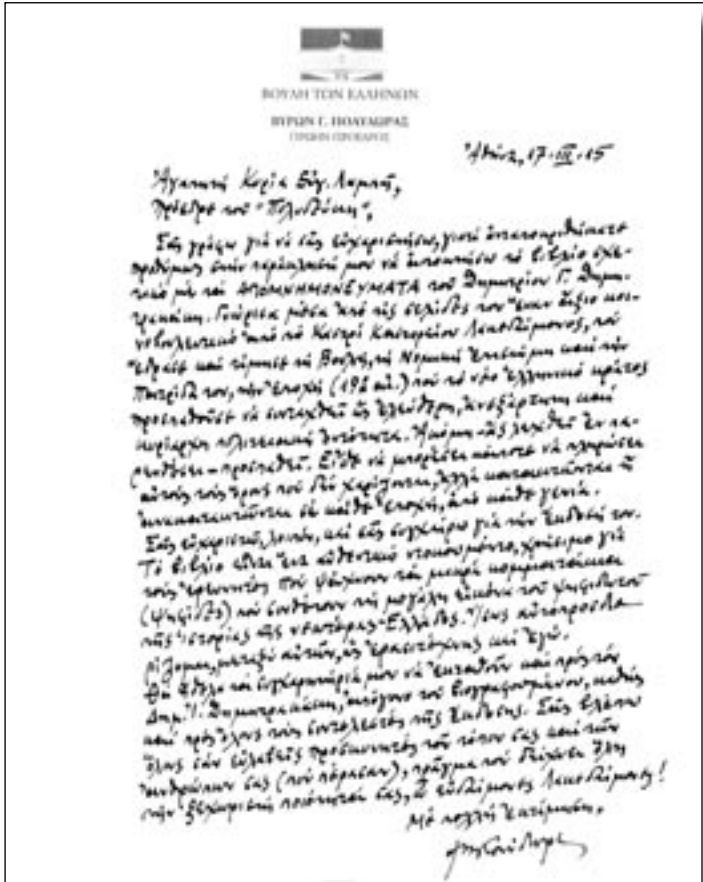 ΒΟΥΛΗ ΤΩΝ ΕΛΛΗΝΩΝ
ΒΥΡΩΝ Γ. ΠΟΛΥΔΩΡΑΣ
ΠΡΩΗΝ ΠΡΟΕΔΡΟΣ
Ἀθήνα, 17-III-15
Ἀγαπητή Κυρία Εὐγ.
Πρόεδρε τοῦ "Πολυδεύκη",
Σᾶς γράφω γιά νά σᾶς εὐχαριστήσω, γιατί ἀνταποκριθήκατε
προθύμως στήν παράκλησή μου νά ἀποκτήσω τό βιβλίο σχε-
τικό μέ τά ΑΠΟΜΝΗΜΟΝΕΥΜΑΤΑ τοῦ Δημητρίου Γ. Δημη-
τρακάκη. Γνώρισα μέσα ἀπό τίς σελίδες του ἕναν ἄξιο κοι-
νοβουλευτικό ἀπό τό Καστρί Καστορείου Λακεδαίμονος, πού
ἔδρασε καί τίμησε τή Βουλή, τή Νομική ἐπιστήμη καί τήν
Πατρίδα του, τήν ἐποχή (19ο αἰ.) πού τό νέο ἑλληνικό κράτος
προσπαθοῦσε νά συνταχθεῖ ὡς ἐλεύθερη, ἀνεξάρτητη καί
κυρίαρχη πολιτειακή ὀντότητα. Ἀκόμη ἄς λεχθεῖ ἐν πα-
ρενθέσει – προσπαθεῖ. Εἴθε νά μπορέσει κάποτε νά πληρώσει
αὐτούς τούς ὅρους πού δέν χαρίζονται, ἀλλά κατακτῶνται ἤ
ἀνακατακτῶνται σέ κάθε ἐποχή, ἀπό κάθε γενιά.
Σᾶς εὐχαριστῶ, λοιπόν, καί σᾶς συγχαίρω γιά τήν ἔκδοσή του.
Τό βιβλίο εἶναι ἕνα αὐθεντικό ντοκουμέντο, χρήσιμο γιά
τούς ἐρευνητές πού ψάχνουν τά μικρά κομματάκια
(ψηφίδες) πού συνθέτουν τή μεγάλη εἰκόνα τοῦ ψηφιδωτοῦ
τῆς ἱστορίας τῆς νεωτέρας Ἑλλάδος.
μεταξύ αὐτῶν, ὡς ἐρασιτέχνης καί ἐγώ.
Θά ἤθελα τά συγχαρητήριά μου νά ἐκταθοῦν καί πρός τόν
Δημ. Γ. Δημητρακάκη, ἀπόγονο τοῦ βιογραφουμένου, καθώς
καί πρός ὅλους τούς συντελεστές τῆς ἔκδοσης. Σᾶς βλέπω
ὅλους σάν εὐλαβεῖς προσκυνητές τοῦ τόπου σας καί τῶν
ἀνθρώπων σας (πού πέρασαν), πρᾶγμα πού δείχνει ὅλη
τήν ξεχωριστή ποιότητά σας, ὦ εὐδαίμονες Λακεδαίμονες!
Μέ πολλή ἐκτίμηση,